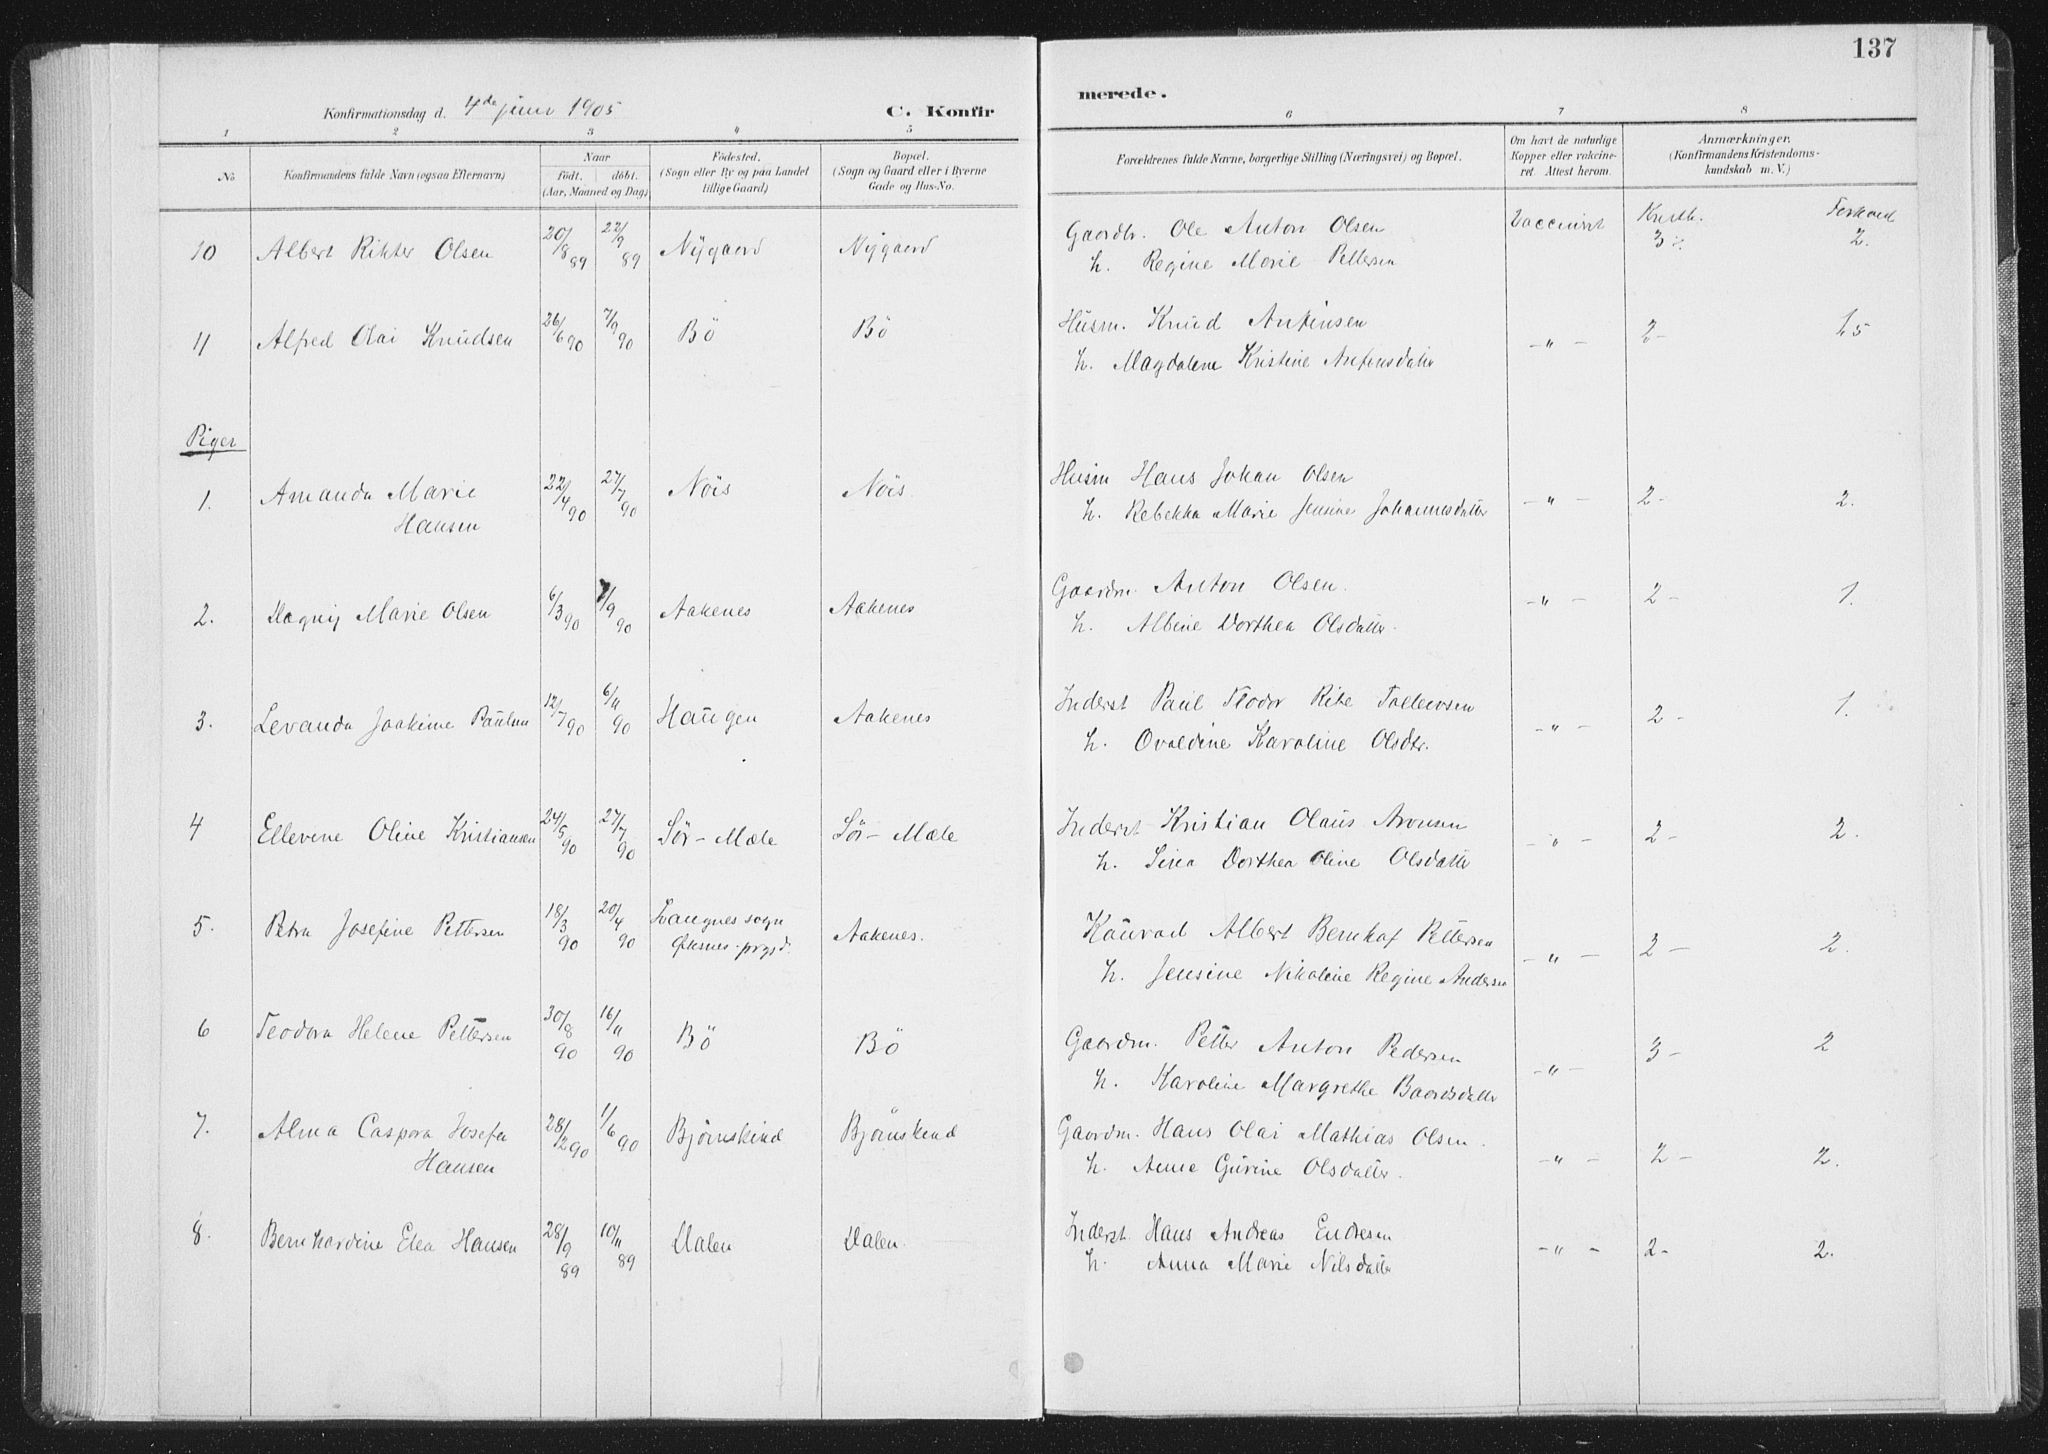 137
Konfirmationsdag d. 4de juni 1905
C. Konfir
merede.
1 2 3 4 5 6 7 8
No.
Konfirmandens fulde Navn (ogsaa Efternavn)
Naar
født. døbt.
(Aar, Maaned og Dag)
Fødested.
(Sogn eller By og paa Landet
tillige Gaard)
Bopæl.
(Sogn og Gaard eller i Byerne
Gade og Hus-No.
Forældrenes fulde Navne, borgerlige Stilling (Næringsvei) og Bopæl.
Om havt de naturlige
Kopper eller vakcine-
ret. Attest herom.
Anmærkninger.
(Konfirmandens Kristendoms-
kundskab m. V.)
10 Albert Rikter Olsen 20/8 89 22/9 89 Nygaard Nygaard Gaardbr. Ole Anton Olsen Vaccineret Kristk. 3 Forhold 2.
h. Regine Marie Pettersen
11 Alfred Olai Knudsen 26/6 90 7/9 90 Bö Bö Husm. Knud Antinsen -"- 2- 1,5
h. Magdalene Kristine
Piger
1. Amanda Marie 22/4 90 27/7 90 Nöis Nöis. Husm Hans Johan Olsen -"- 2- 2.
Hansen h. Rebekka Marie Jensine Johannesdatter
2. Dagny Marie Olsen 6/3 90 7/9 90 Aakenes Aakenes Gaardm. Anton Olsen. -"- 2- 1.
h. Albine Dorthea Olsdatter.
3. Levanda Joakime Paulsen 12/7 90 6/11 90 Haugen Aakenes Inderst Paul Teodor Tollevsen -"- 2- 1.
h. Ovaldine Karoline Olsdtr.
4 Ellevine Oline Kristiansen 24/5 90 27/7 90 Sør-Mæle Sør-Mæle Inderst Kristian Olaus Aronsen -"- 2- 2.
h. Sina Dorthea Oline Olsdatter
5. Petra Josefine Pettersen 18/3 90 20/4 90 Langnes sogn Aakenes. Konrad Albert Bernhof Pettersen -"- 2- 2.
Øksnes prgjd. h. Jensine Nikoline Regine Andersen
6 Teodora Helene Pettersen 30/8 90 16/11 90 Bö Bö Gaardm. Petter Anton Pedersen -"- 3- 2
h. Karoline Margrethe Baardsdatter
7. Alma Caspara Josefa 28/2 90 1/6 90 Bjørnskind Bjørnskind Gaardm. Hans Olai Mathias Olsen. -"- 2- 2.
Hansen h. Anne Gurine Olsdatter.
8. Bernhardine Elea Hansen 28/9 89 10/11 89 Dalen Dalen. Inderst. Hans Andreas Endresen -"- 2- 2.
h. Anna Marie Nilsdatter